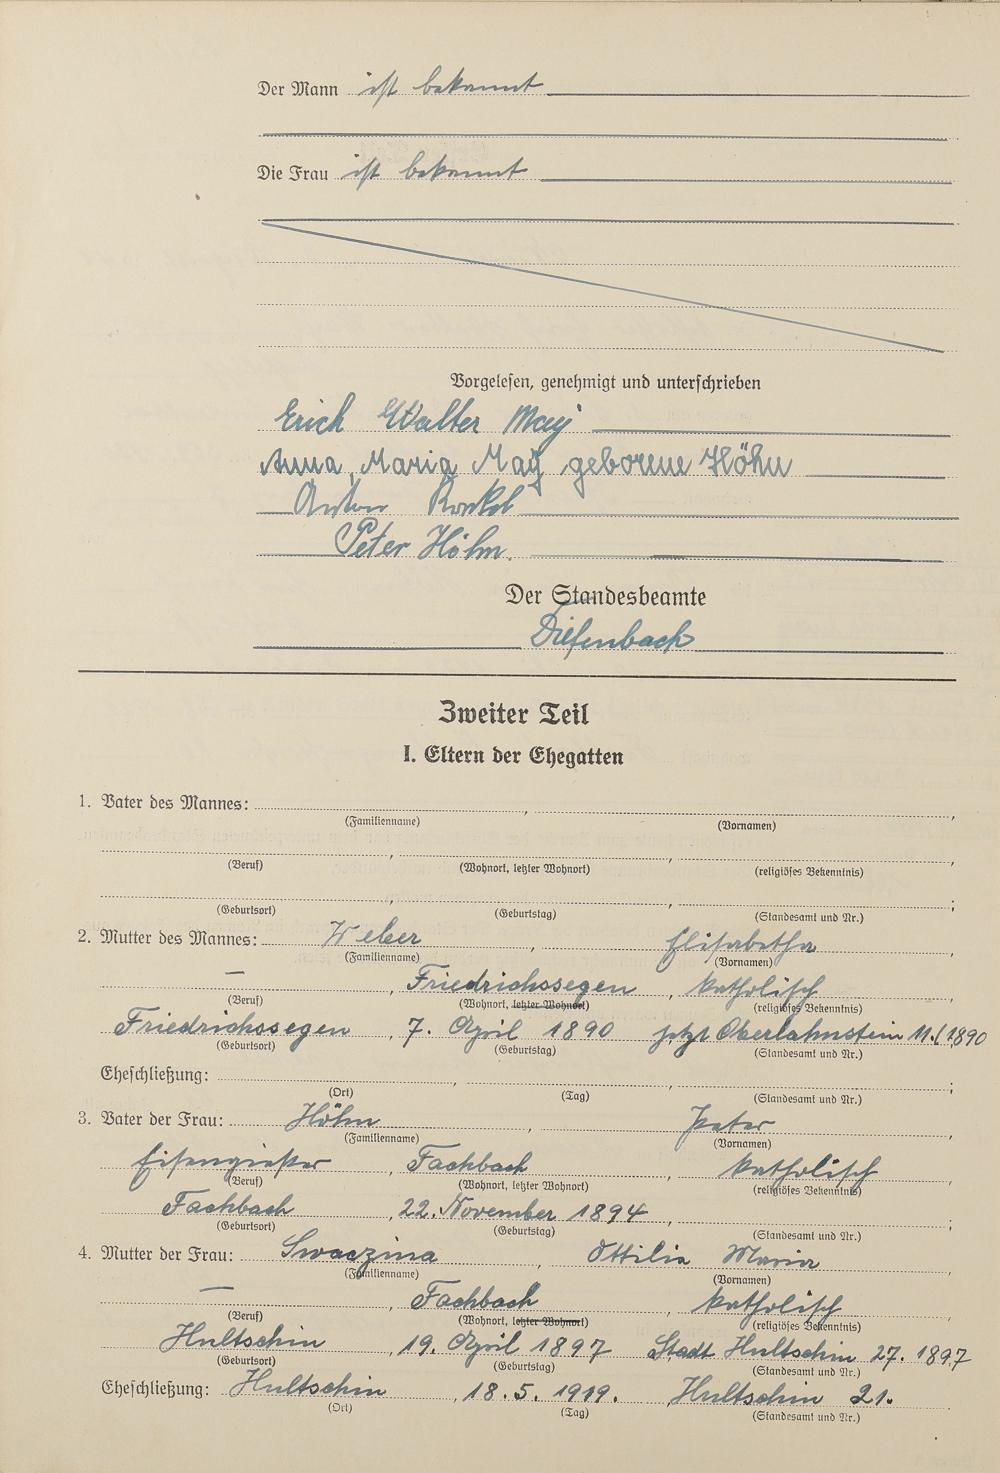 Der Mann ist bekannt
Die Frau ist bekannt
Vorgelesen, genehmigt und unterschrieben
Erich Walter May
Anna Maria May geborene Höhn
Anton
Peter Höhn.
Der Standesbeamte
Diefenbach
Zweiter Teil
I. Eltern der Ehegatten
1. Vater des Mannes: , ,
(Familienname) (Vornamen)
, , ,
(Beruf) (Wohnort, letzter Wohnort) (religiöses Bekenntnis)
, , ;
(Geburtsort) (Geburtstag) (Standesamt und Nr.)
2. Mutter des Mannes: Weber , Elisabetha ,
(Familienname) (Vornamen)
— , Friedrichssegen , katholisch
(Beruf) (Wohnort, letzter Wohnort) (religiöses Bekenntnis)
Friedrichssegen , 7. April 1890 jetzt Oberlahnstein 11./1890
(Geburtsort) (Geburtstag) (Standesamt und Nr.)
Eheschließung: , , ;
(Ort) (Tag) (Standesamt und Nr.)
3. Vater der Frau: Höhn , Peter ,
(Familienname) (Vornamen)
Eisengießer , Fachbach katholisch
(Beruf) (Wohnort, letzter Wohnort) (religiöses Bekenntnis)
Fachbach , 22. November 1894 , ;
(Geburtsort) (Geburtstag) (Standesamt und Nr.)
4. Mutter der Frau: Swaczina , Ottilia Maria ,
(Familienname) (Vornamen)
— , Fachbach , katholisch
(Beruf) (Wohnort, letzter Wohnort) (religiöses Bekenntnis)
Hultschin , 19. April 1897 Stadt Hultschin 27. 1897
(Geburtsort) (Geburtstag) (Standesamt und Nr.)
Eheschließung: Hultschin , 18.5.1919. , Hultschin 21.
(Ort) (Tag) (Standesamt und Nr.)